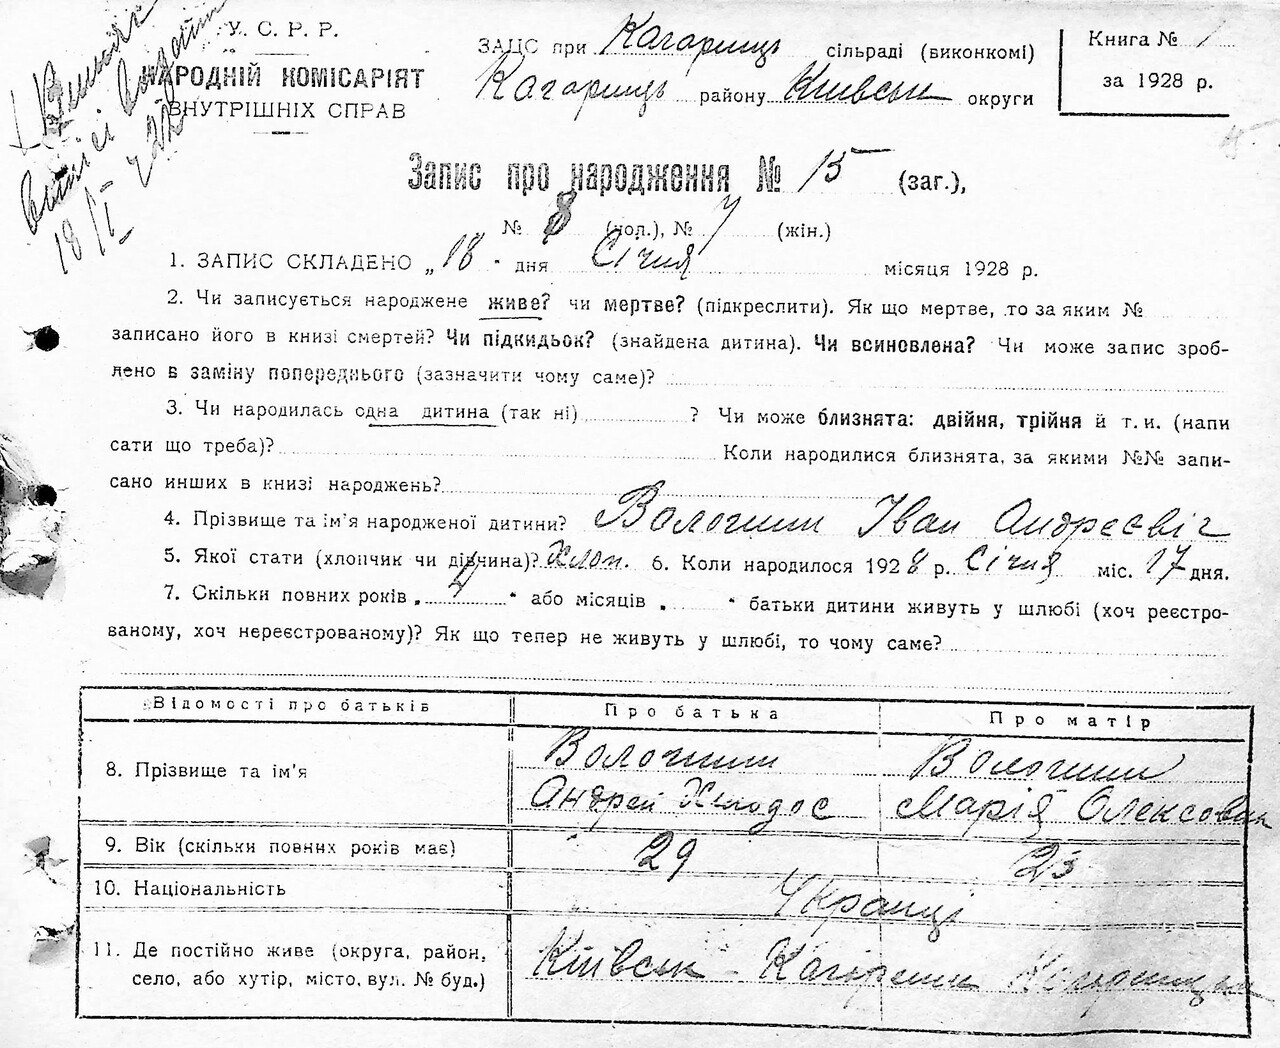 У. С. Р. Р.
НАРОДНІЙ КОМІСАРІЯТ
ВНУТРІШНІХ СПРАВ
ЗАЦС при Кагарлиць сільраді (виконкомі)
Кагарлиць району Київськ округи
Книга № 1
за 1928 р.
Запис про народження № 15 (заг.),
№ 8 (чол.), № 7 (жін.)
1. ЗАПИС СКЛАДЕНО „18" дня Січня місяця 1928 р.
2. Чи записується народжене живе? чи мертве? (підкреслити). Як що мертве, то за яким №
записано його в книзі смертей? Чи підкидьок? (знайдена дитина). Чи всиновлена? Чи може запис зроб-
лено в заміну попереднього (зазначити чому саме)?
3. Чи народилась одна дитина (так ні) ? Чи може близнята: двійня, трійня й т. и. (напи
сати що треба)? Коли народилися близнята, за якими №№ запи-
сано инших в книзі народжень?
4. Прізвище та ім'я народженої дитини? Волошин Іван Андреєвіч
5. Якої стати (хлопчик чи дівчина)? Хлоп. 6. Коли народилося 1928 р. Січня міс. 17 дня.
7. Скільки повних років „ 4 " або місяців „ " батьки дитини живуть у шлюбі (хоч реєстро-
ваному, хоч нереєстрованому)? Як що тепер не живуть у шлюбі, то чому саме?
Відомості про батьків Про батька Про матір
8. Прізвище та ім'я Волошин Андрей Волошин Марія
9. Вік (скільки повних років має) 29 23
10. Національність Українці
11. Де постійно живе (округа, район,
село, або хутір, місто, вул. № буд.) Київськ